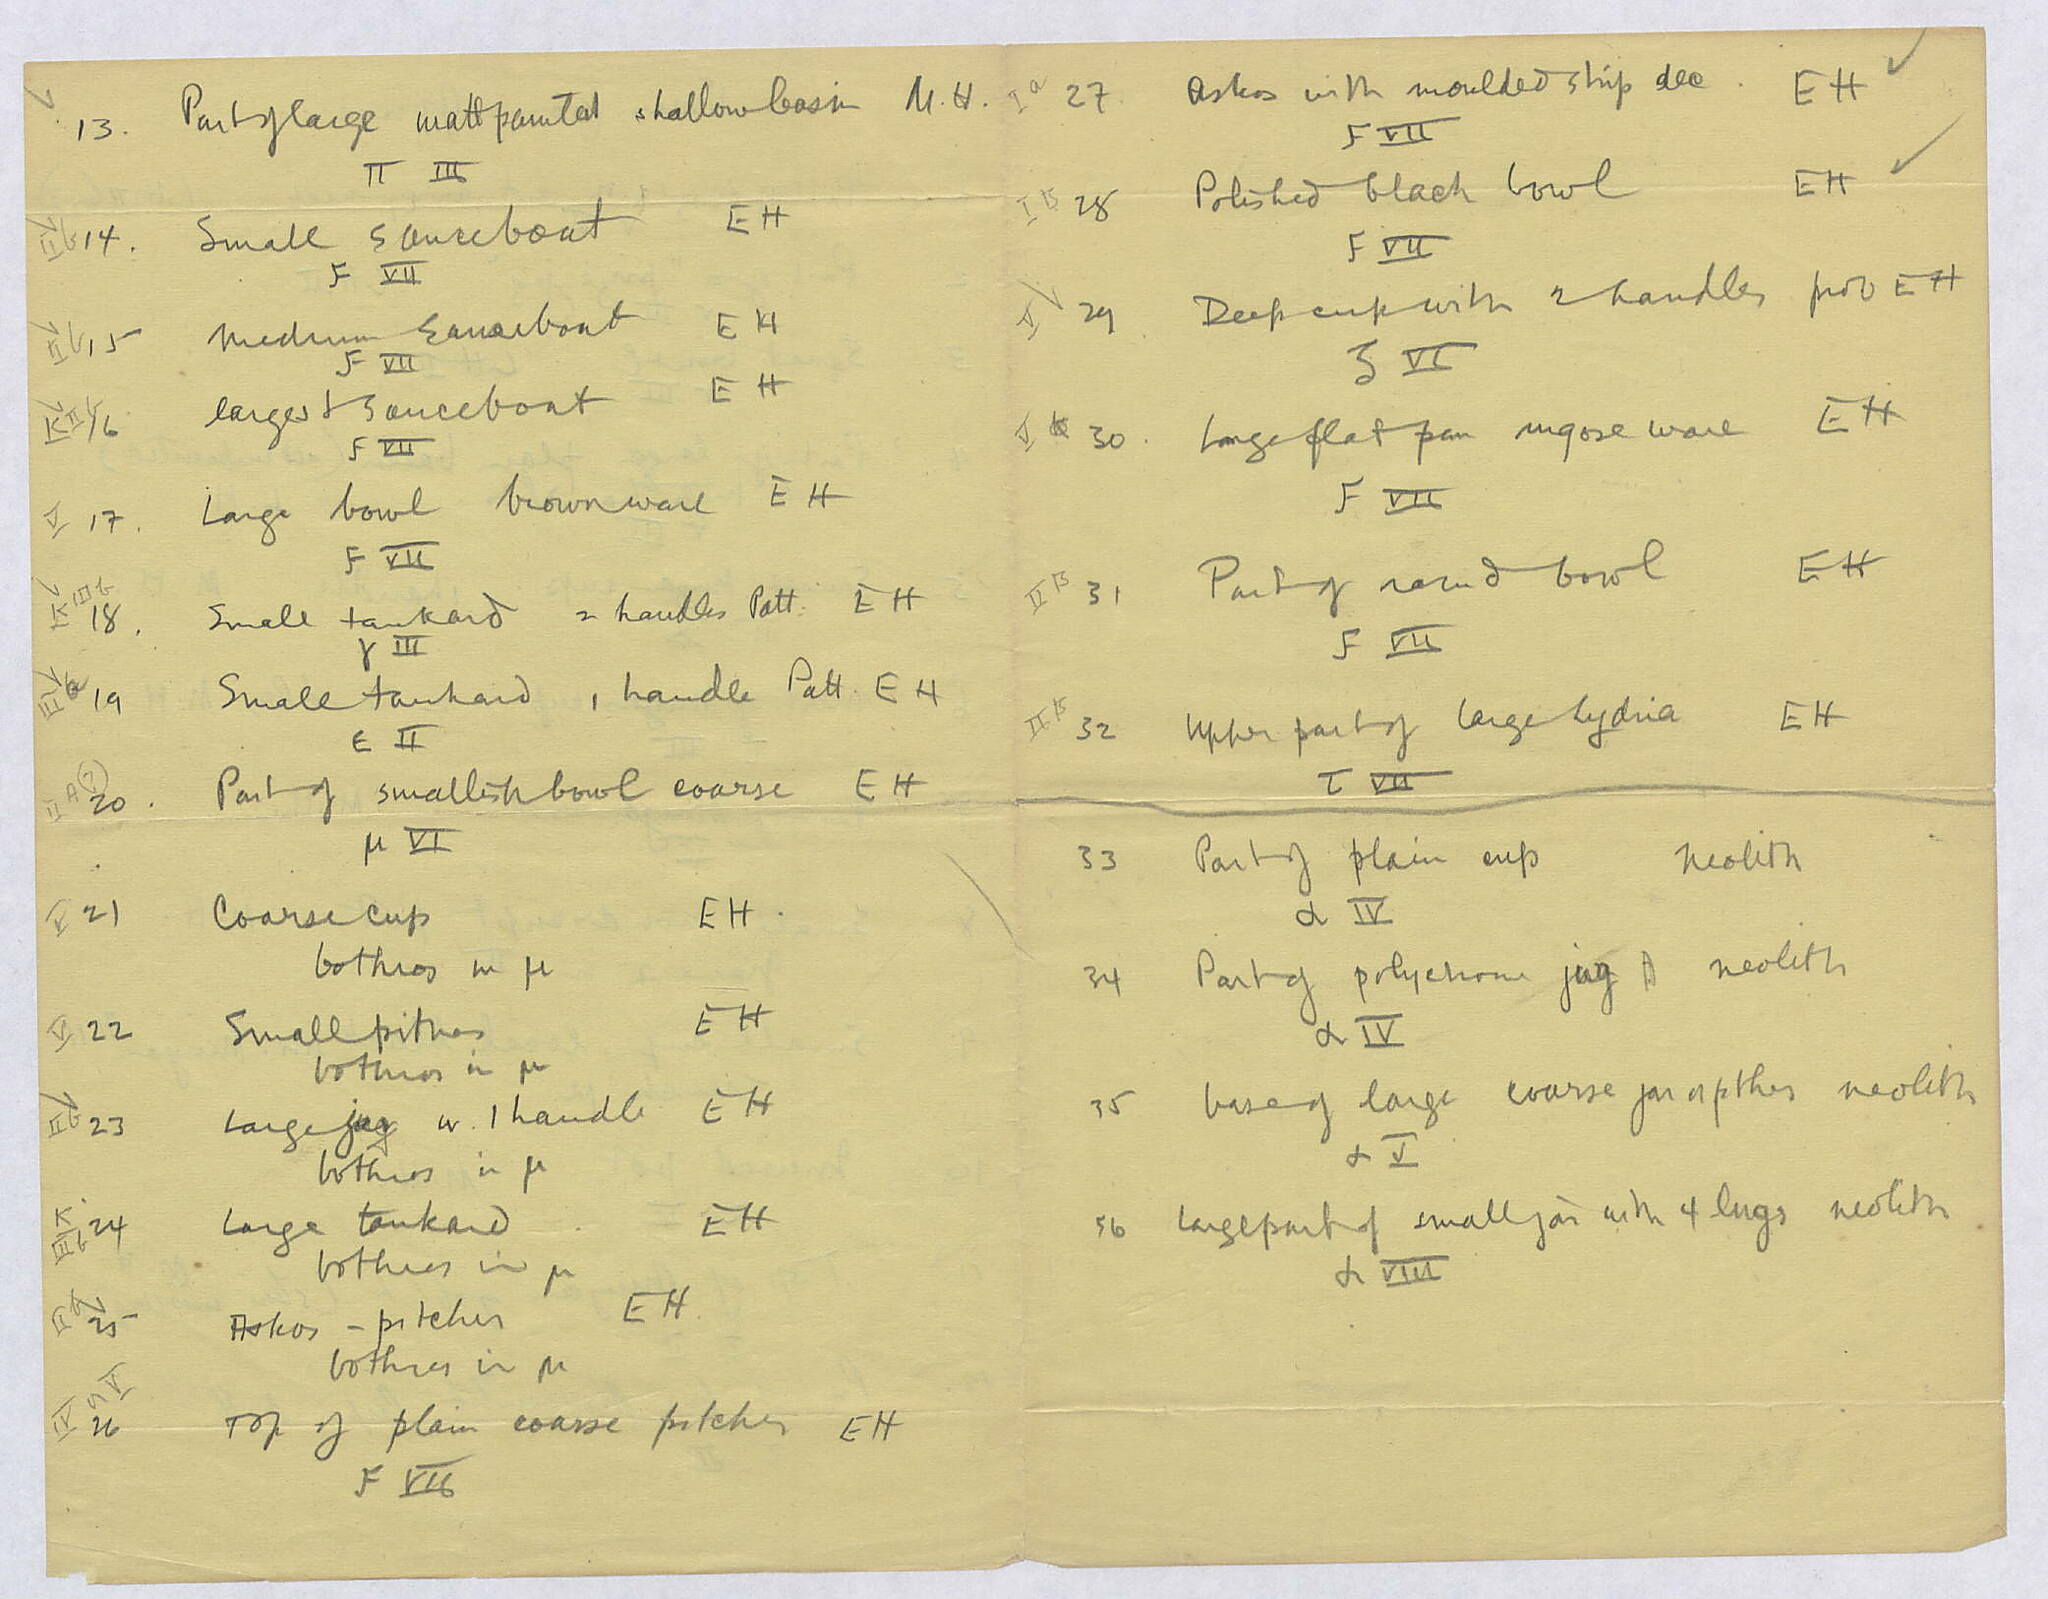 13. Part of large mattpainted shallow basin M.H.
π III
II b 14. Small sauceboat EH
F VII
II b 15 Medium Sauceboat EH
F VII
K II b 16 largest Sauceboat EH
F VII
V 17. Large bowl brown ware EH
F VII
K III b 18. Small tankard 2 handles Patt. EH
γ III
19 Small tankard 1 handle Patt. EH
ε II
II A (?) 20. Part of smallish bowl coarse EH
μ VI
V 21 Coarse cup EH.
bothros in μ
V 22 Small pithos EH
bothros in μ
II b 23 Large jug w. 1 handle EH
bothros in μ
K III b 24 Large tankard EH
bothros in μ
II b 25 Askos - pitcher EH
bothros in μ
IV or V 26 Top of plain coarse pitcher EH
F VIIb
I a 27. Askos with moulded strip dec. EH
F VII
I B 28 Polished black bowl EH
F VII
V 29 Deep cup with 2 handles prob EH
ζ VI
V 30. Large flat pan rugose ware EH
F VII
II B 31 Part of round bowl EH
F VII
II B 32 Upper part of large hydria EH
τ VII
33 Part of plain cup Neolith
α IV
34 Part of polychrome jug neolith
α IV
35 base of large coarse jar or pithos neolith
α V
36 Large part of small jar with 4 lugs neolith
α VIII